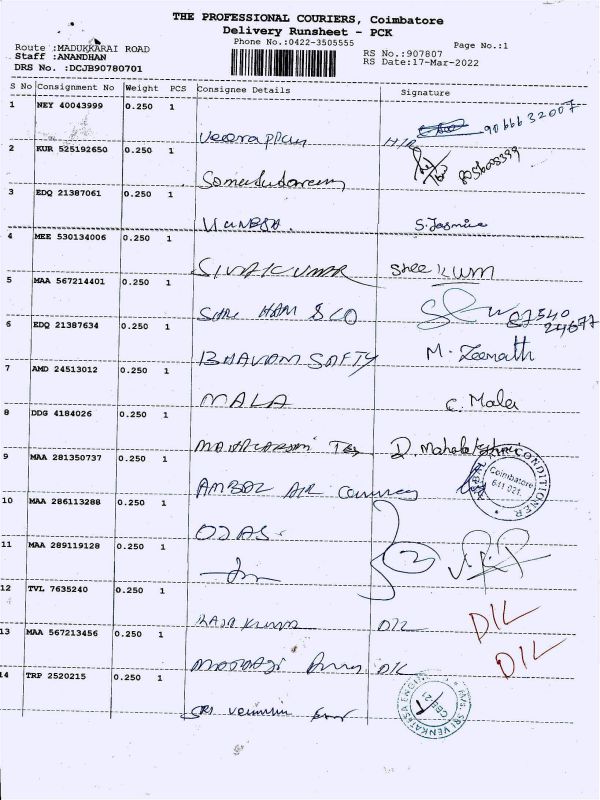 THE PROFESSIONAL COURIERS, Coimbatore
Delivery Runsheet - PCK
Phone No.:0422-3505555
Page No.:1
Route :MADUKKARAI ROAD
Staff :ANANDHAN
DRS No. :DCJB90780701
RS No.:907807
RS Date:17-Mar-2022
S No Consignment No Weight PCS Consignee Details Signature
1 NEY 40043999 0.250 1
9066632007
2 KUR 525192650 0.250 1
3 EDQ 21387061 0.250 1
S. Jasmica
4 MEE 530134006 0.250 1
SIVAKUMAR Shee KUM
5 MAA 567214401 0.250 1
SHRI HAM & CO 87540
24677
6 EDQ 21387634 0.250 1
BHAVIOM SAFTY M. Zeenath
7 AMD 24513012 0.250 1
MALA C. Mala
8 DDG 4184026 0.250 1
MAHALAXMI Tex D. Mahalakshmi
9 MAA 281350737 0.250 1
Coimbatore
641 021.
AMBAL AIR
10 MAA 286113288 0.250 1
OJAS
11 MAA 289119128 0.250 1
2
12 TVL 7635240 0.250 1
RAJA KUMAR DIL DIL
13 MAA 567213456 0.250 1
DIL DIL
14 TRP 2520215 0.250 1
M/s. SRI VENKATESA
CBE
21
SRI